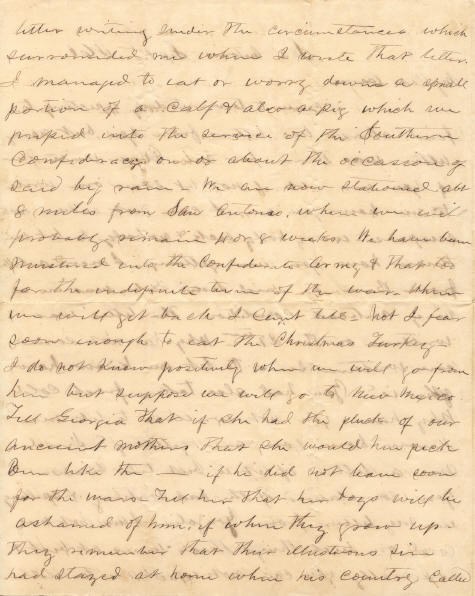 letter writing under the circumstances which
surrounded me when I wrote that letter.
I managed to eat or worry down a small
portion of a Calf & also a pig which we
presped into the service of the Southern
Confederacy on or about the occasion of
said big rain We are now stationed abt
8 miles from San Antonio, where we will
probably remain 4 or 8 weeks. We have been
mustered into the Confederate Army & that too
for the indefinite term of the war. When
we will get back I Can't tell - not I fear
soon enough to eat the Christmas Turkey
I do not know positively when we will go from
here but suppose we will go to New Mexico.
Tell Georgia that if she had the pluck of our
ancient mothers that she would kick
Ben like the — if he did not leave soon
for the wars. Tell her that her boys will be
ashamed of him, if when they grow up
they remember that their illustrious sire
had stayed at home when his country Called